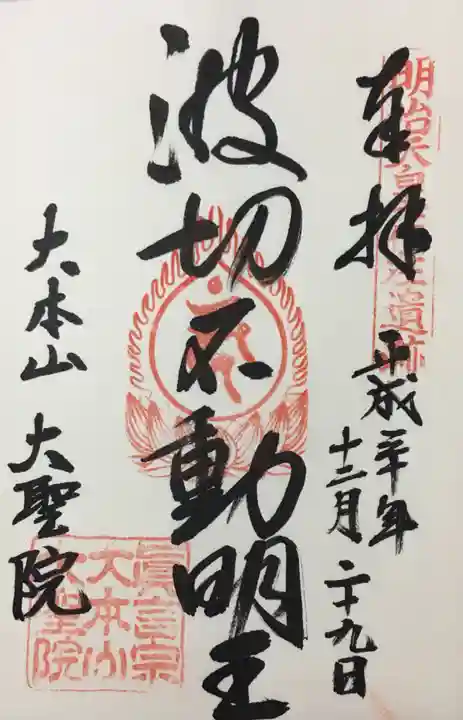 奉拝
明治天皇
遺跡
平成三十年
十二月二十九日
波切不動明王
大本山 大聖院
眞言宗
大本山
大聖院